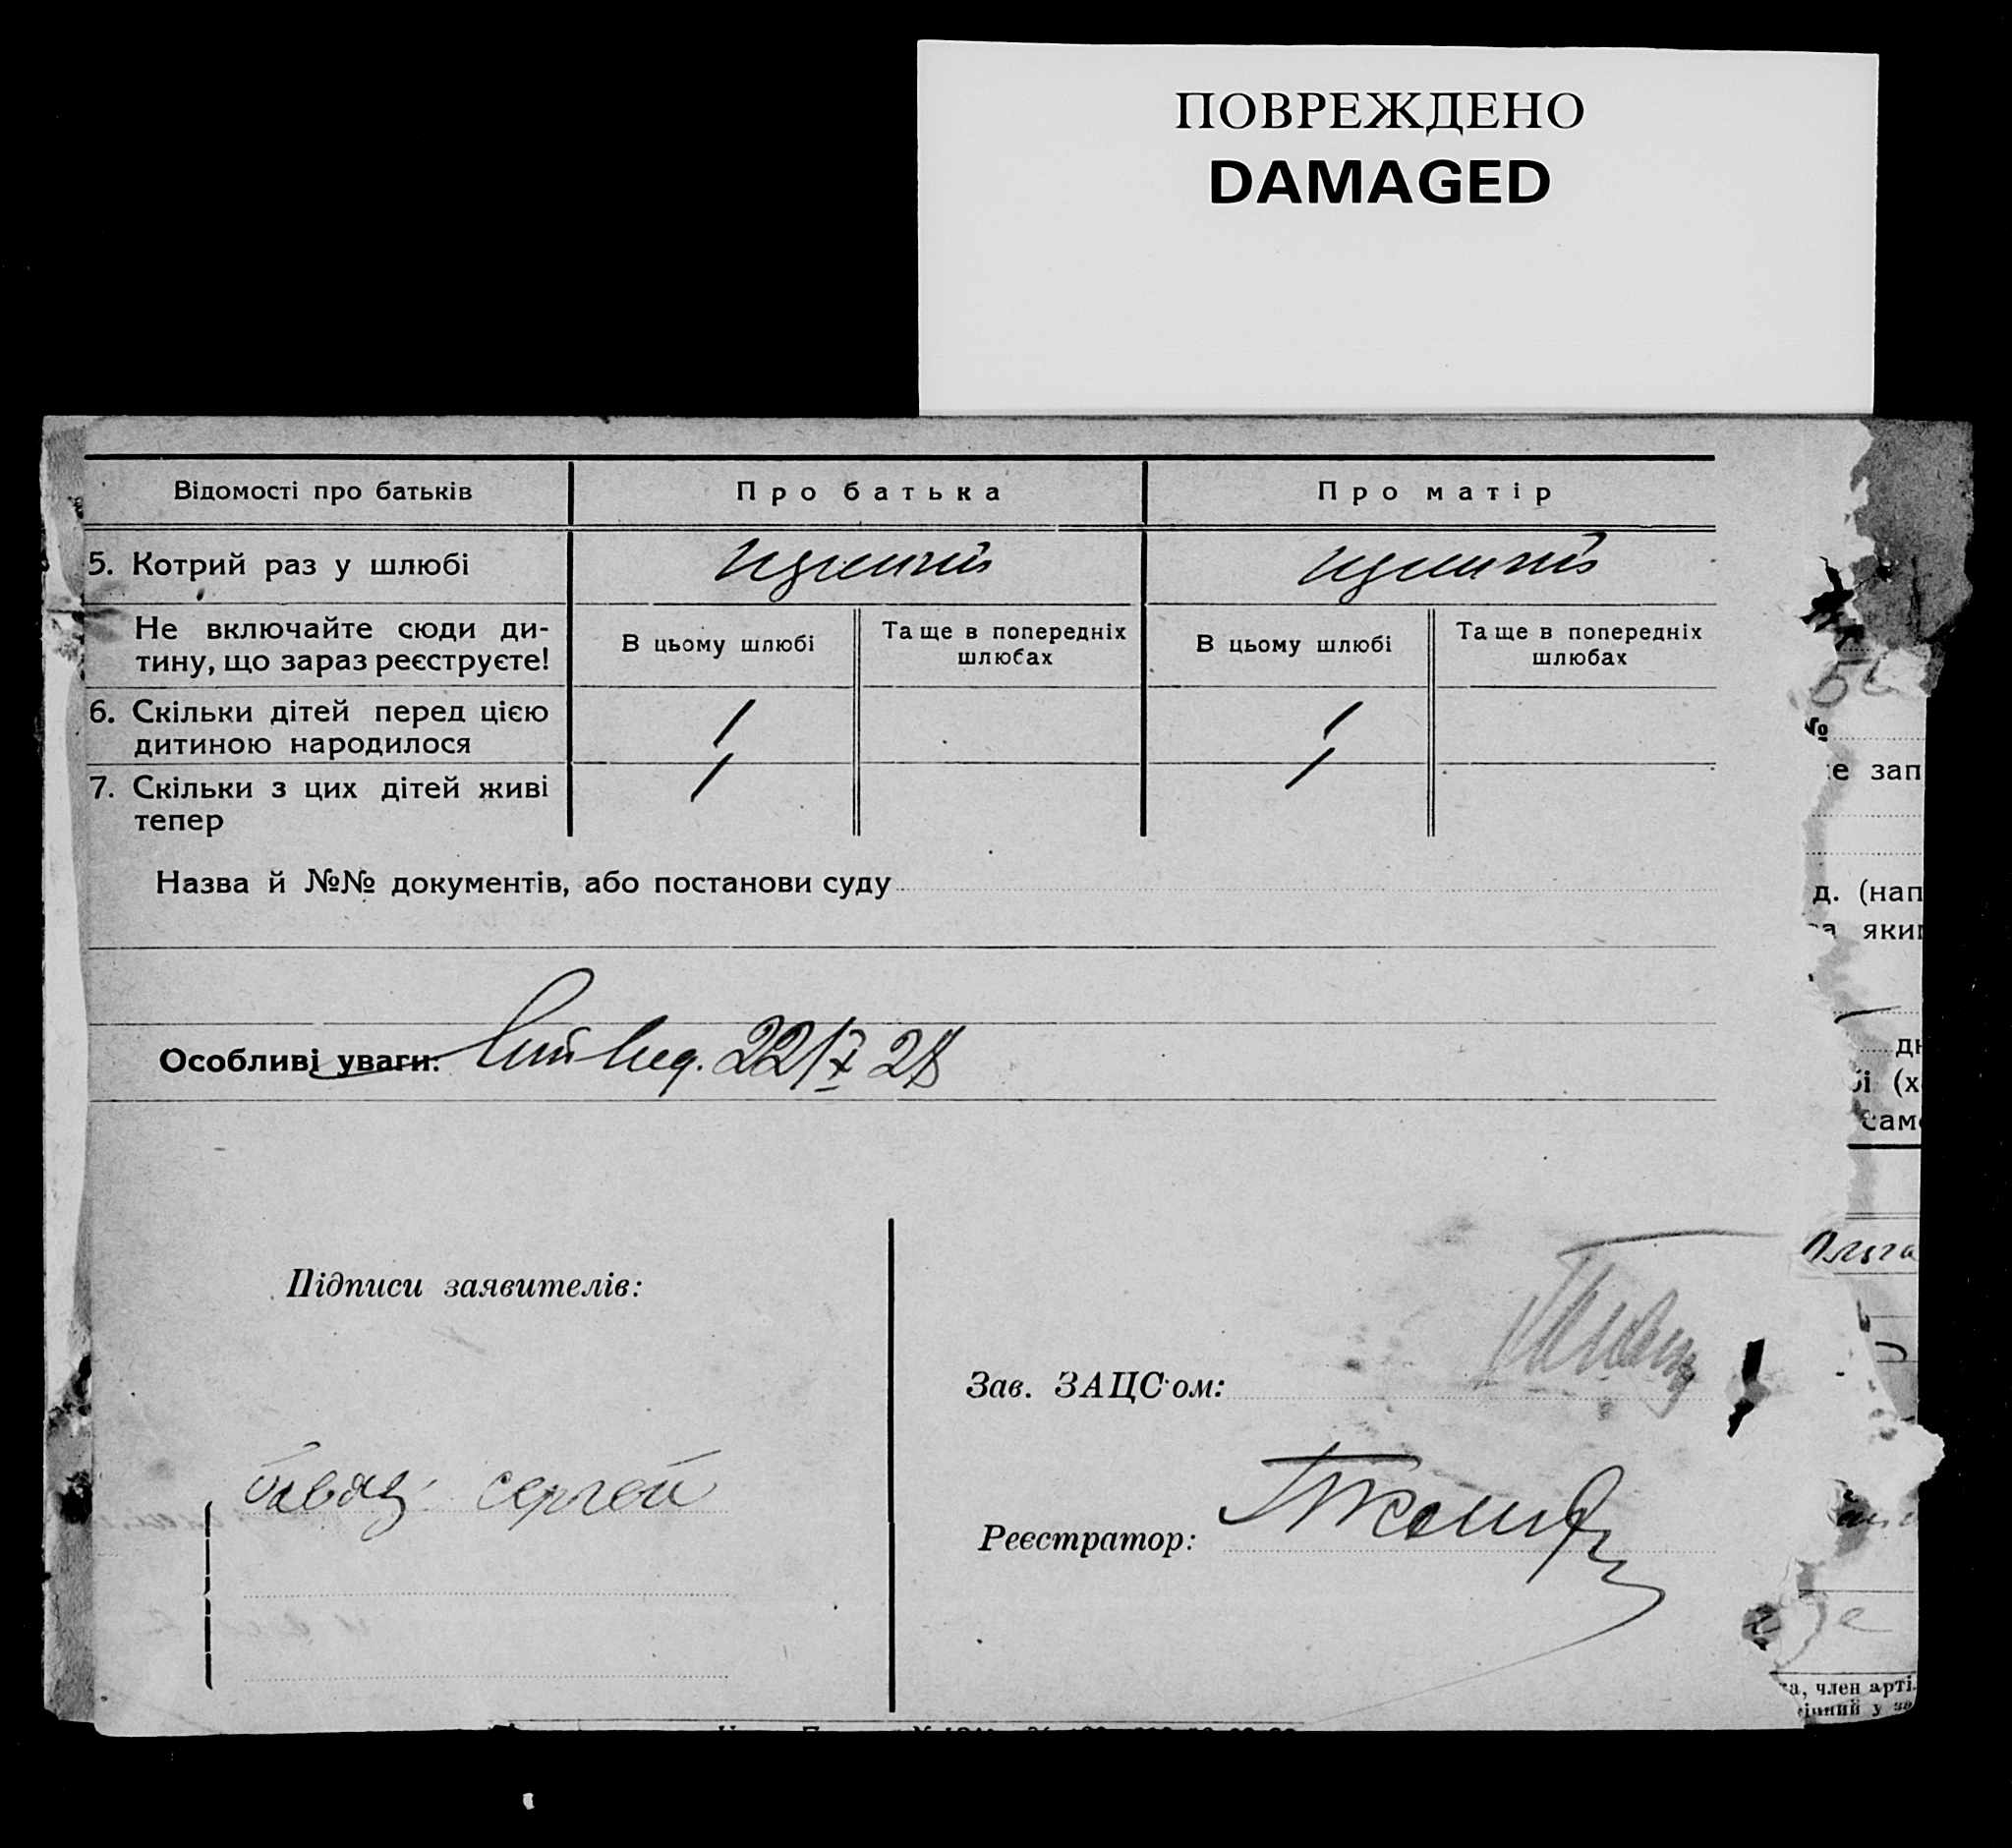 ПОВРЕЖДЕНО
DAMAGED
Відомості про батьків
Про батька
Про матір
5. Котрий раз у шлюбі
Не включайте сюди ди-
тину, що зараз реєструєте!
В цьому шлюбі
Та ще в попередніх
шлюбах
В цьому шлюбі
Та ще в попередніх
шлюбах
6. Скільки дітей перед цією
дитиною народилося
/
/
7. Скільки з цих дітей живі
тепер
/
/
Назва й №№ документів, або постанови суду
Особливі уваги: 22/X 28
Підписи заявителів:
Зав. ЗАЦС'ом:
сергей
Реєстратор:
№
е зап
д. (нап
яки
(х
Ольга
а, член арті
у